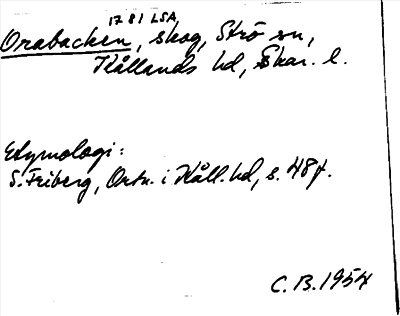 1781 LSA,
Orabacken, skog, Strö sn,
Kållands hd, Skar. l.
Etymologi:
S. Friberg, Ortn. i Kåll. hd, s. 48 f.
C. B. 1954